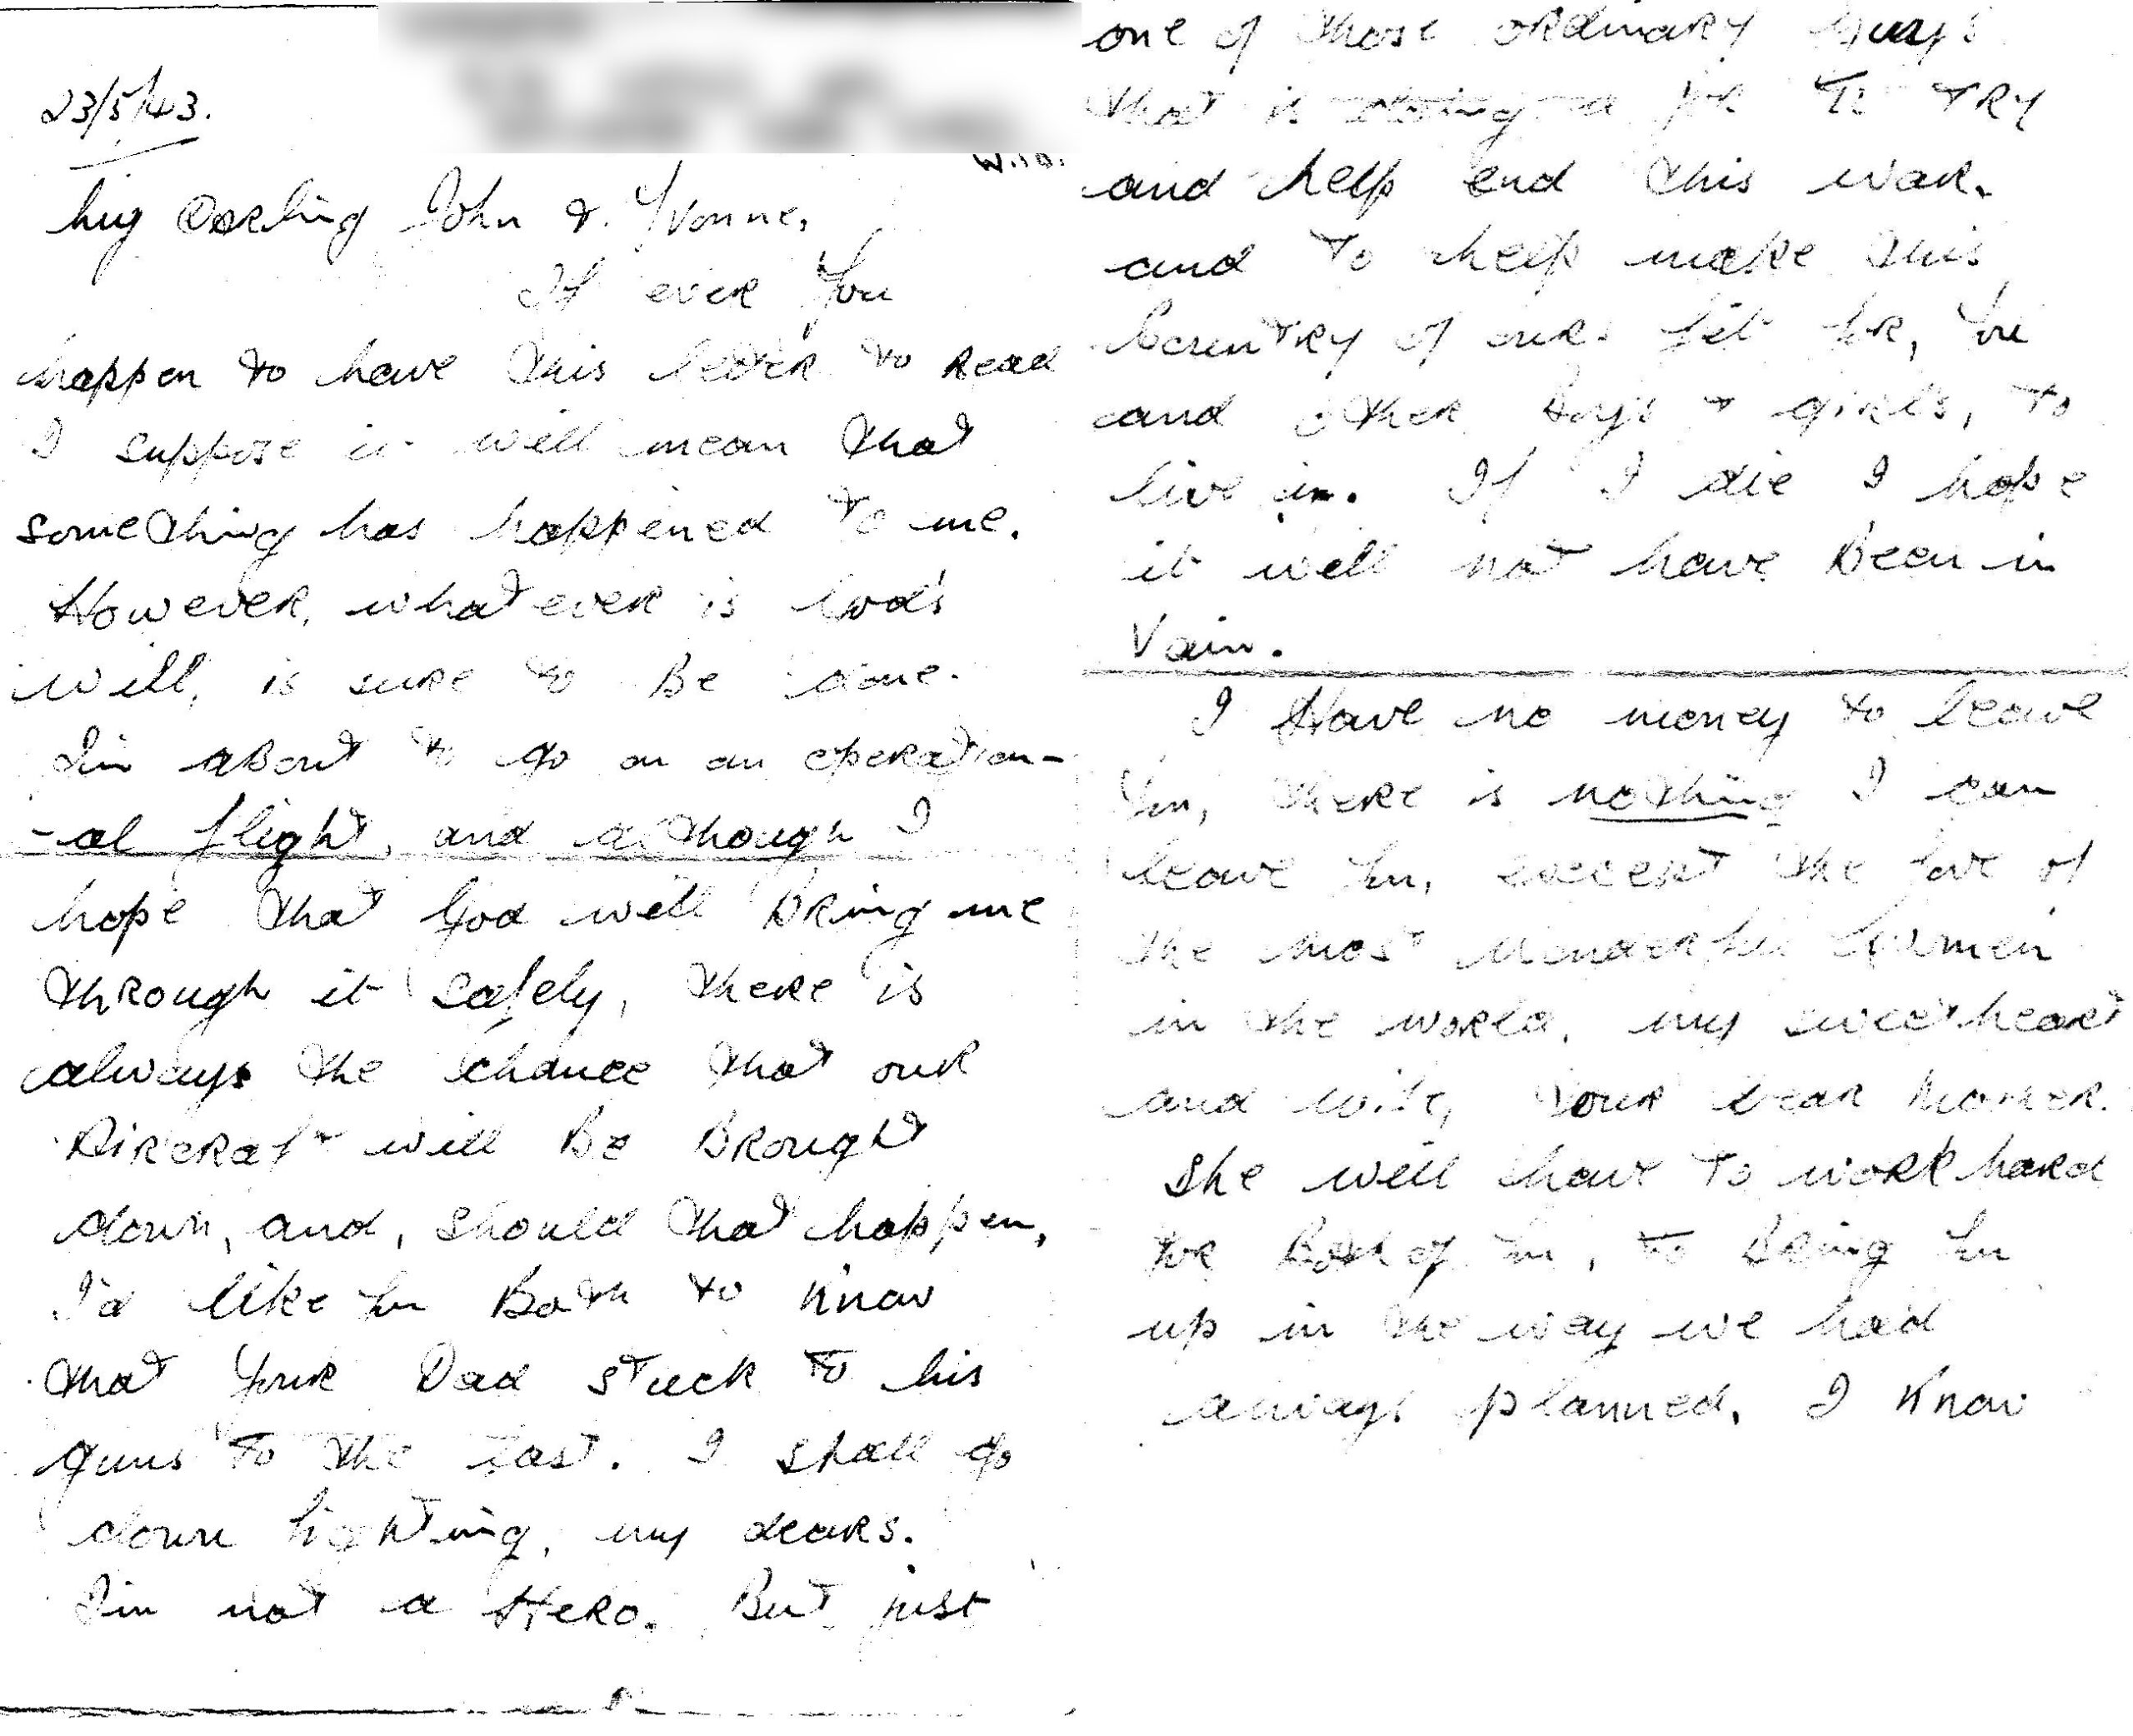 23/5/43.
W.10.
My Darling John & Yvonne,
If ever You
happen to have this letter to Read
I suppose it will mean that
something has happened to me.
However, what ever is God's
Will, is sure to Be done.
I'm aBout to go on an operation-
-al flight, and although I
hope that God will Bring me
through it safely, there is
always the chance that our
Aircraft will Be Brought
down, and, should that happen,
I'd like You Both to Know
that Your Dad stuck to his
guns to the last. I shall go
down fighting, my dears.
I'm not a Hero. But just
one of those ordinary Guys
that is doing a job to TRY
and help end this war.
and to help make this
Country of ours fit for, You
and other Boys & girls, to
live in. If I die I hope
it will not have Been in
Vain.
I Have no money to leave
You, there is nothing I can
leave You, except the love of
the most Wonderful Women
in the world, my sweetheart
and wife, Your dear Mother.
She will have to work hard
for Both of You, to Bring You
up in the way we had
always planned, I Know